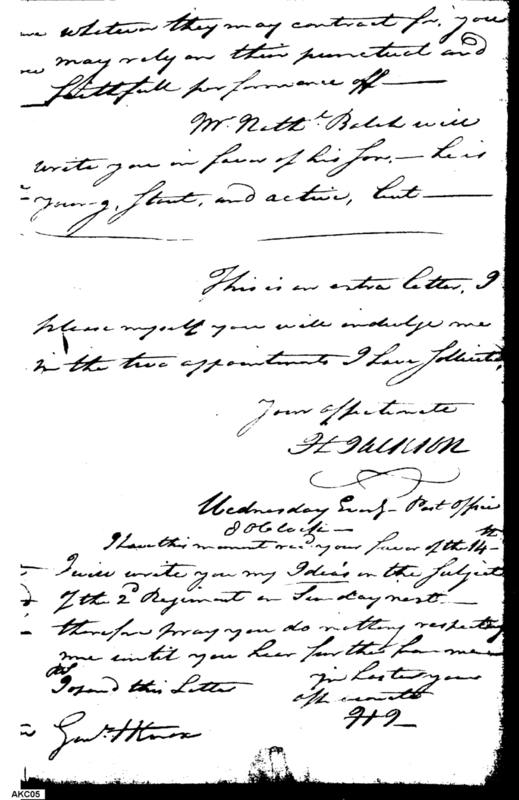 whatever they may contract for, you
may rely on their punctual and
faithfull performance off —
Mr. Nath.l Balch will
write you in favor of his son, — he is
young, stout, and active, but —
This is an extra letter, I
please myself you will indulge me
in the two appointments I have sollicited,
Your affectionate
H Jackson
Wednesday Eveng - Post Office
8 OClock —
I have this moment recd your favor of the 14th
I will write you my Idea's on the subject
of the 2d Regiment on Sunday next —
therefore pray you do nothing respecting
me until you hear further from me
I opend this Letter
in haste yours
affectionate
HJ
Genl. H Knox
AKC05